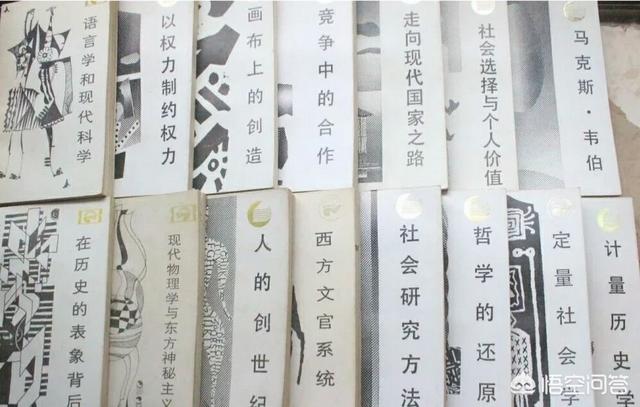 语言学和现代科学
以权力制约权力
画布上的创造
竞争中的合作
走向现代国家之路
社会选择与个人价值
马克斯·韦伯
在历史的表象背后
现代物理学与东方神秘主义
人的创世纪
西方文官系统
社会研究方法
哲学的还原
定量社会学
计量历史学
悟空问答